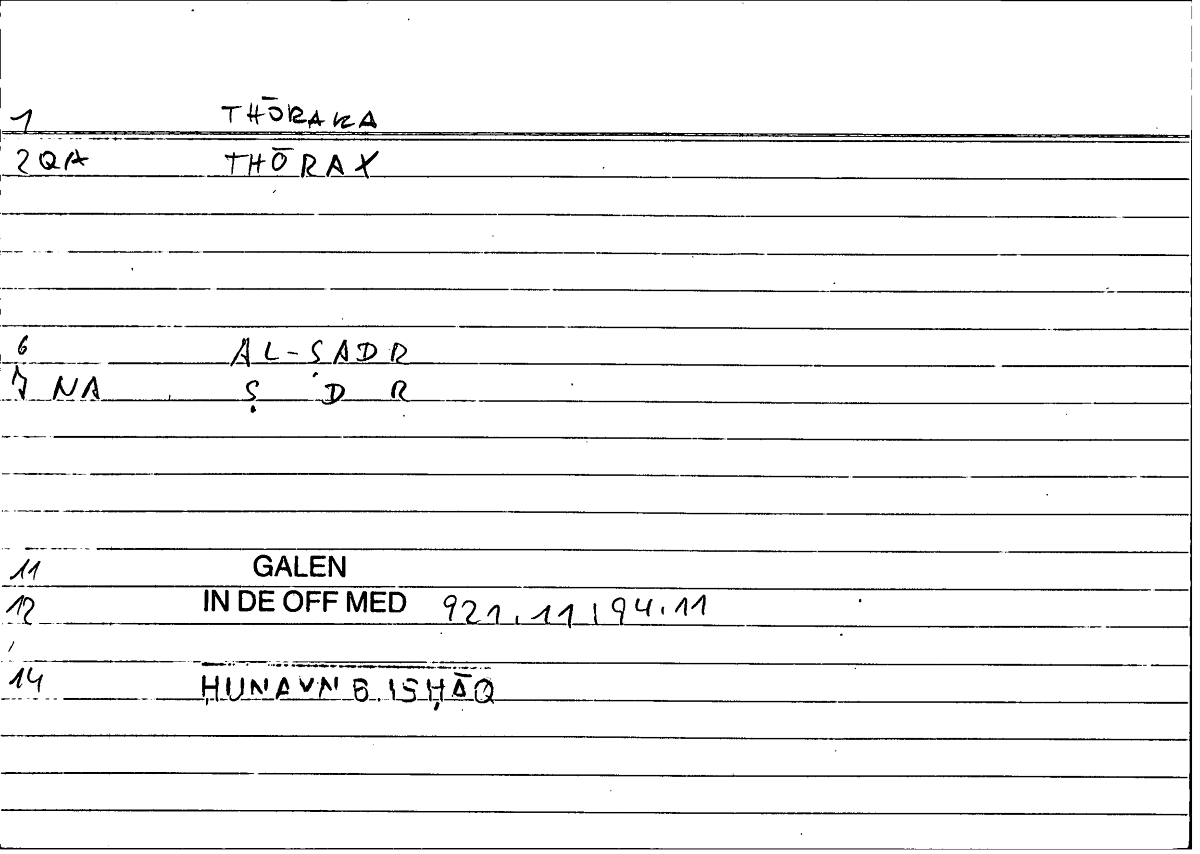 1 THŌRAKA
2 QA THŌRAX
6 AL-ṢADR
7 NA Ṣ D R
11 GALEN
12 IN DE OFF MED 921,11 | 94,11
14 ḤUNAYN B. ISḤĀQ